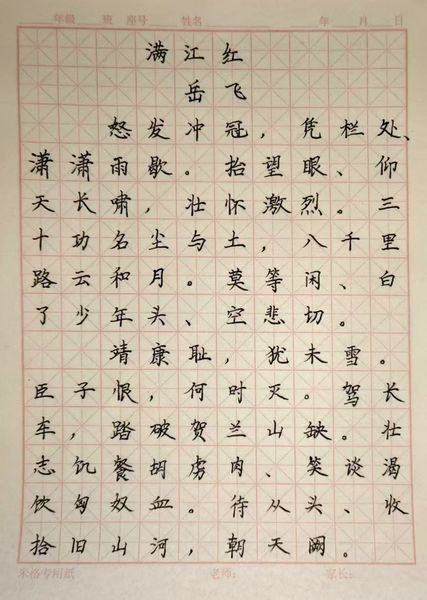 年级 班 座号 姓名 年 月 日
满江红
岳飞
怒发冲冠，凭栏处、
潇潇雨歇。抬望眼、仰
天长啸，壮怀激烈。三
十功名尘与土，八千里
路云和月。莫等闲、白
了少年头、空悲切。
靖康耻，犹未雪。
臣子恨，何时灭。驾长
车，踏破贺兰山缺。壮
志饥餐胡虏肉、笑谈渴
饮匈奴血。待从头、收
拾旧山河，朝天阙。
米格专用纸 老师： 家长：